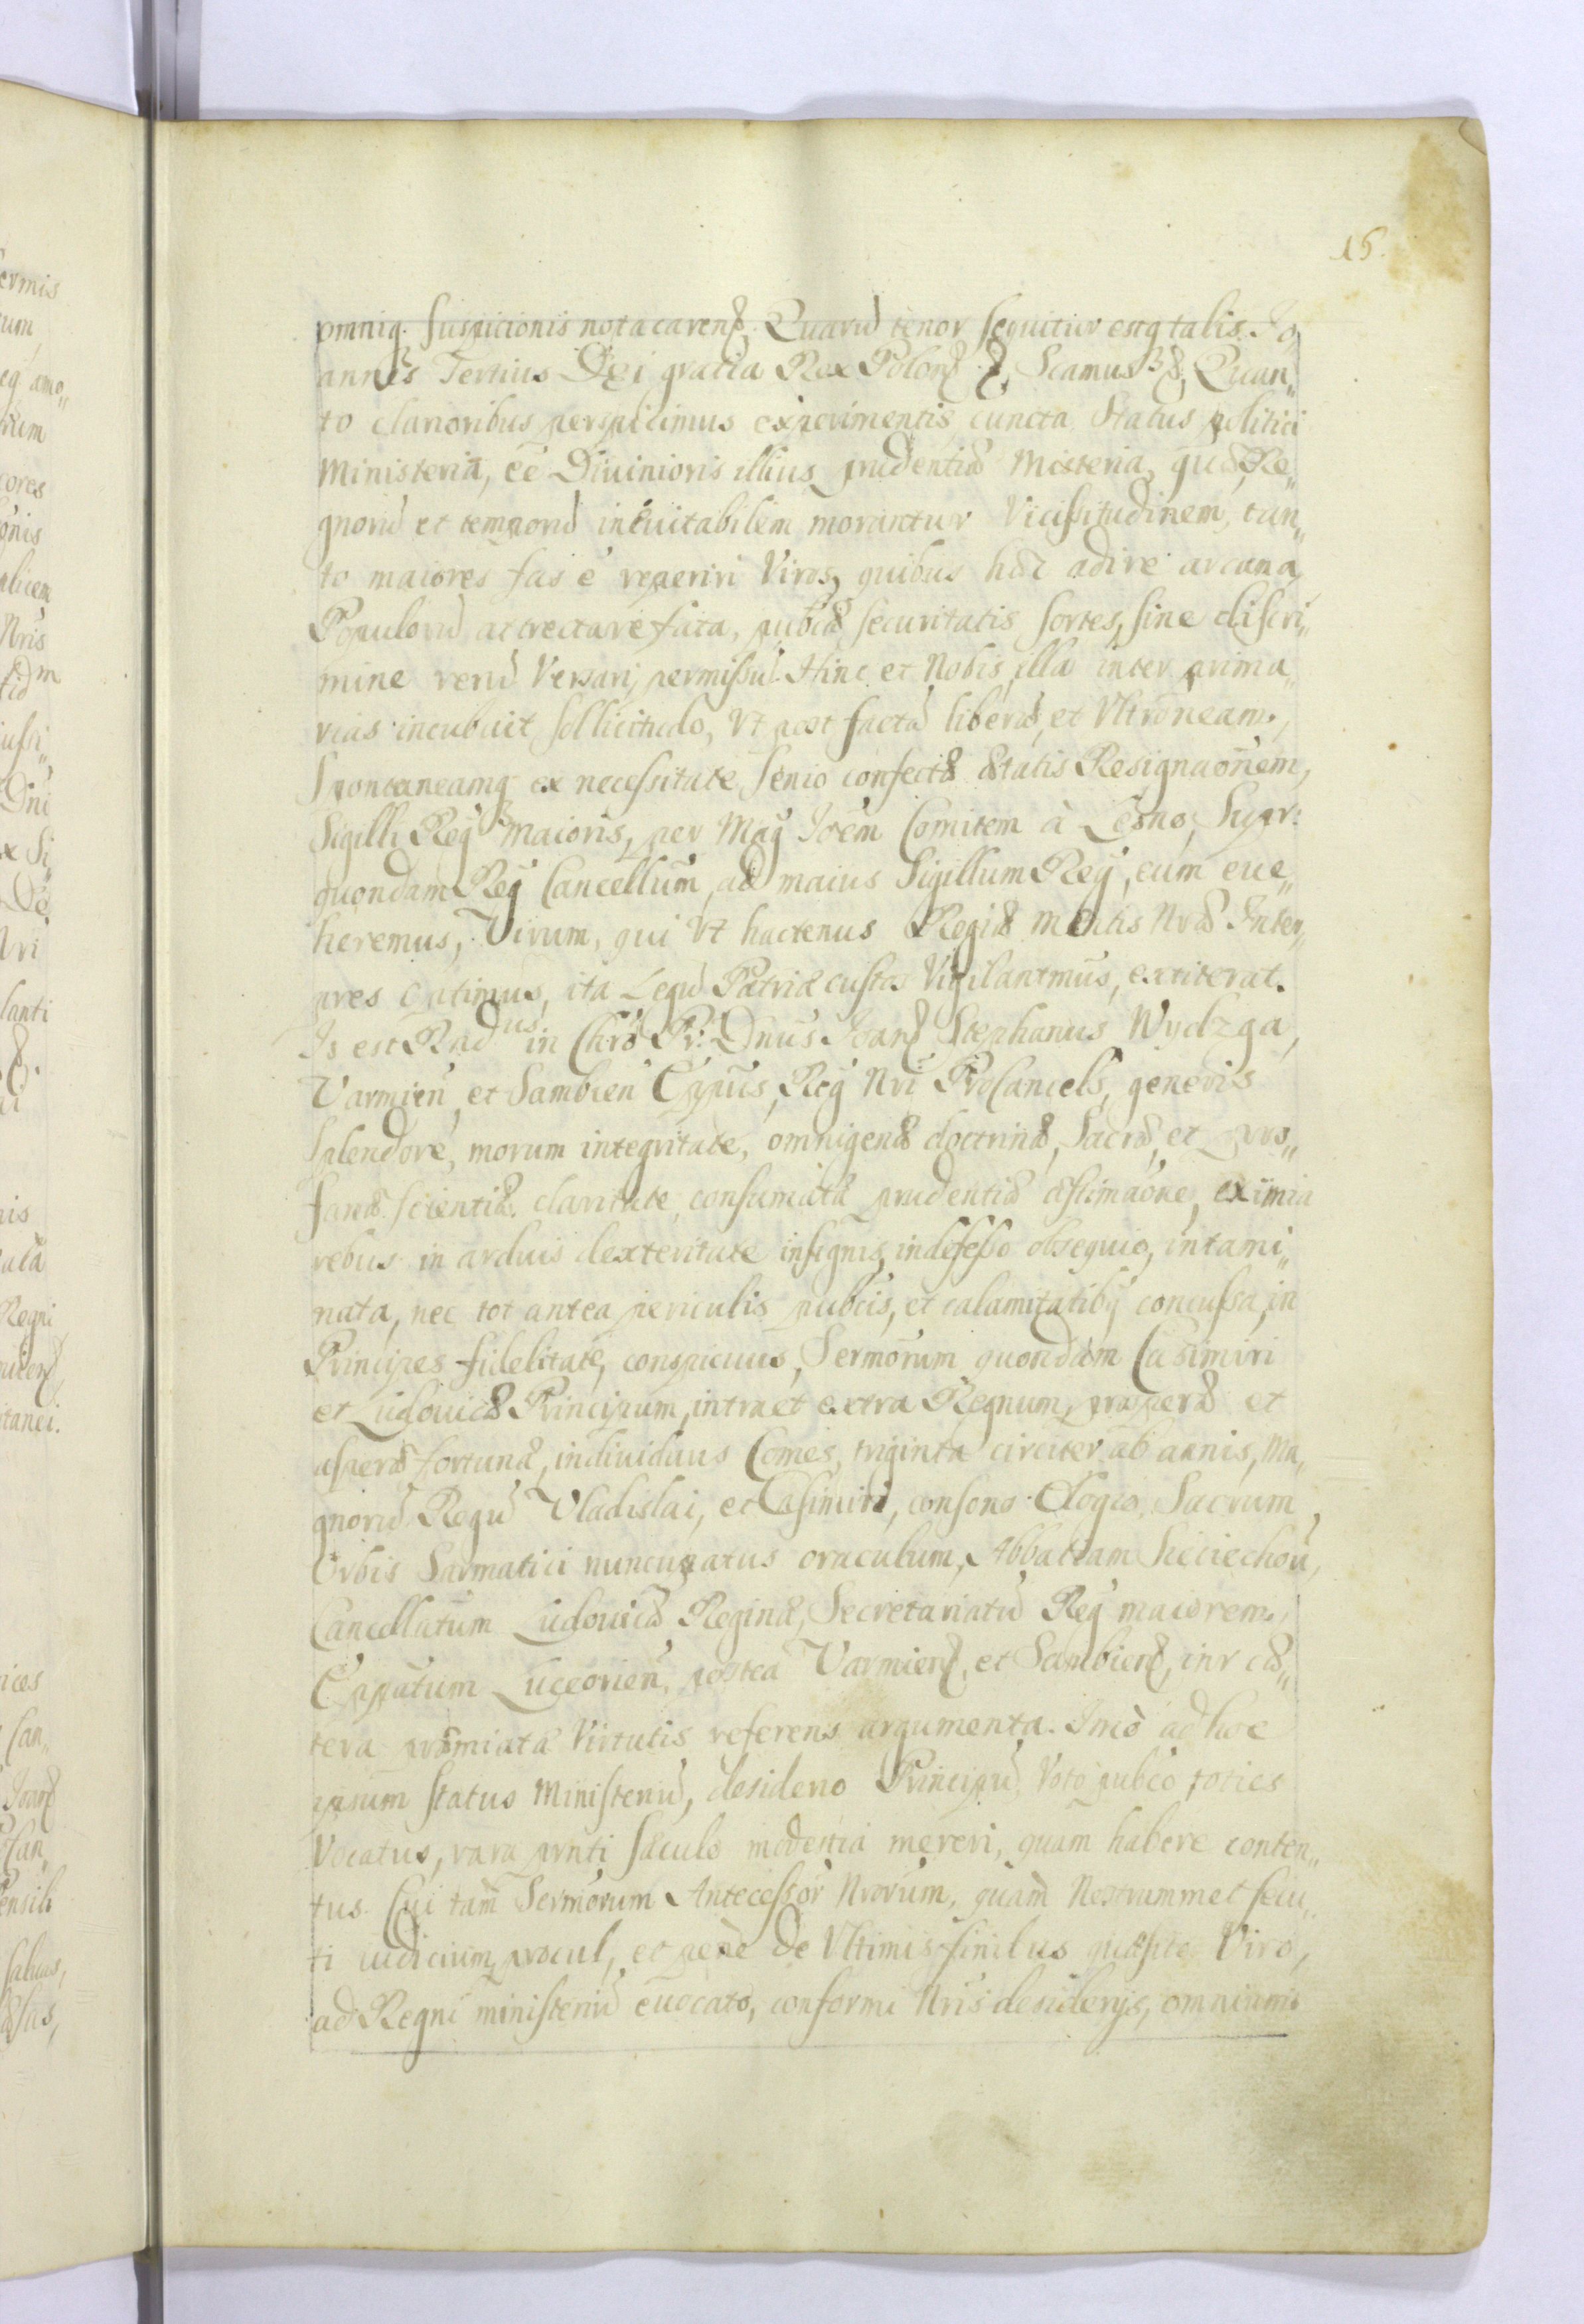 15.
omniq. suspicionis nota carens. Quarũ tenor sequitur estq talis. Jo„
annes Tertius Dei gratia Rex Polon &, Scamus &, Quan„
to clarioribus perspicimus experimentis cuncta Status politici
Ministeria, eẽ Diuinioris illius prudentiæ Misteria, quæ Re„
gnorũ et temporũ ineuitabilem morantur Vicissitudinem, tan„
to maiores fas ẽ reperiri Viros, quibus hæc adire arcana,
Populorũ attrectare fata, pubcæ securitatis sortes, sine discri„
mine rerũ Versari permissũ. Hinc et Nobis illa inter prima„
rias incubuit sollicitudo, Vt post factã liberã, et Vltroneam,
Spontaneamq ex necessitate senio confectæ ætatis Resignaõnem,
Sigilli Regni maioris, per Mag Joẽm Comitem à Lesno, Supr:
quondam Reg Cancellum, ad maius Sigillum Reg, eum eue„
heremus, Virum, qui Vt hactenus Regiæ Mentis Nræ Inter„
pres optimus, ita Legũ Patriæ custos Vigilantmus, extiterat.
Is est Rndus in Chrõ Pr: Dnus Joans Stephanus Wydzga,
Varmien et Sambien Eppus, Reg Nri ProCancels, generis
splendore, morum integritate, omnigenæ doctrinæ, Sacræ, et pro„
fanæ scientiæ claritate, consumatæ prudentiæ æstimaõne, eximia
rebus in arduis dexteritate insignis, indefesso obsequio, intami„
nata, nec tot antea periculis pubcis, et calamitatibq concussa, in
Principes fidelitate, conspicuus, Sermorum quondam Casimiri
et Ludouicæ Principum, intra et extra Regnum, prosperæ et
asperæ fortunæ, indiuiduus Comes, triginta circiter ab annis, Ma„
gnorũ Regũ Vladislai, et Casimiri, consono Elogio, Sacrum
Orbis Sarmatici nuncupatus oraculum, Abbatiam Sieciechou,
Cancellatum Ludouicæ Reginæ, Secretariatũ Reg maiorem,
Eppatum Luceorien, postea Varmiens, et Sambiens, inr cæ„
tera præmiatæ Virtutis referens argumenta. Imò ad hoc
ipsum Status Ministeriũ, desiderio Principũ, Voto pubco toties
Vocatus, rara prnti sæculo modestia mereri, quam habere conten„
tus. Cui tam Sermorum Antecessor Nrorum, quàm Nostrummet secu„
ti iudicium, procul, et penè de Vltimis finibus quæsito Viro,
ad Regni ministeriũ euocato, conformi Nris desiderijs, omnium